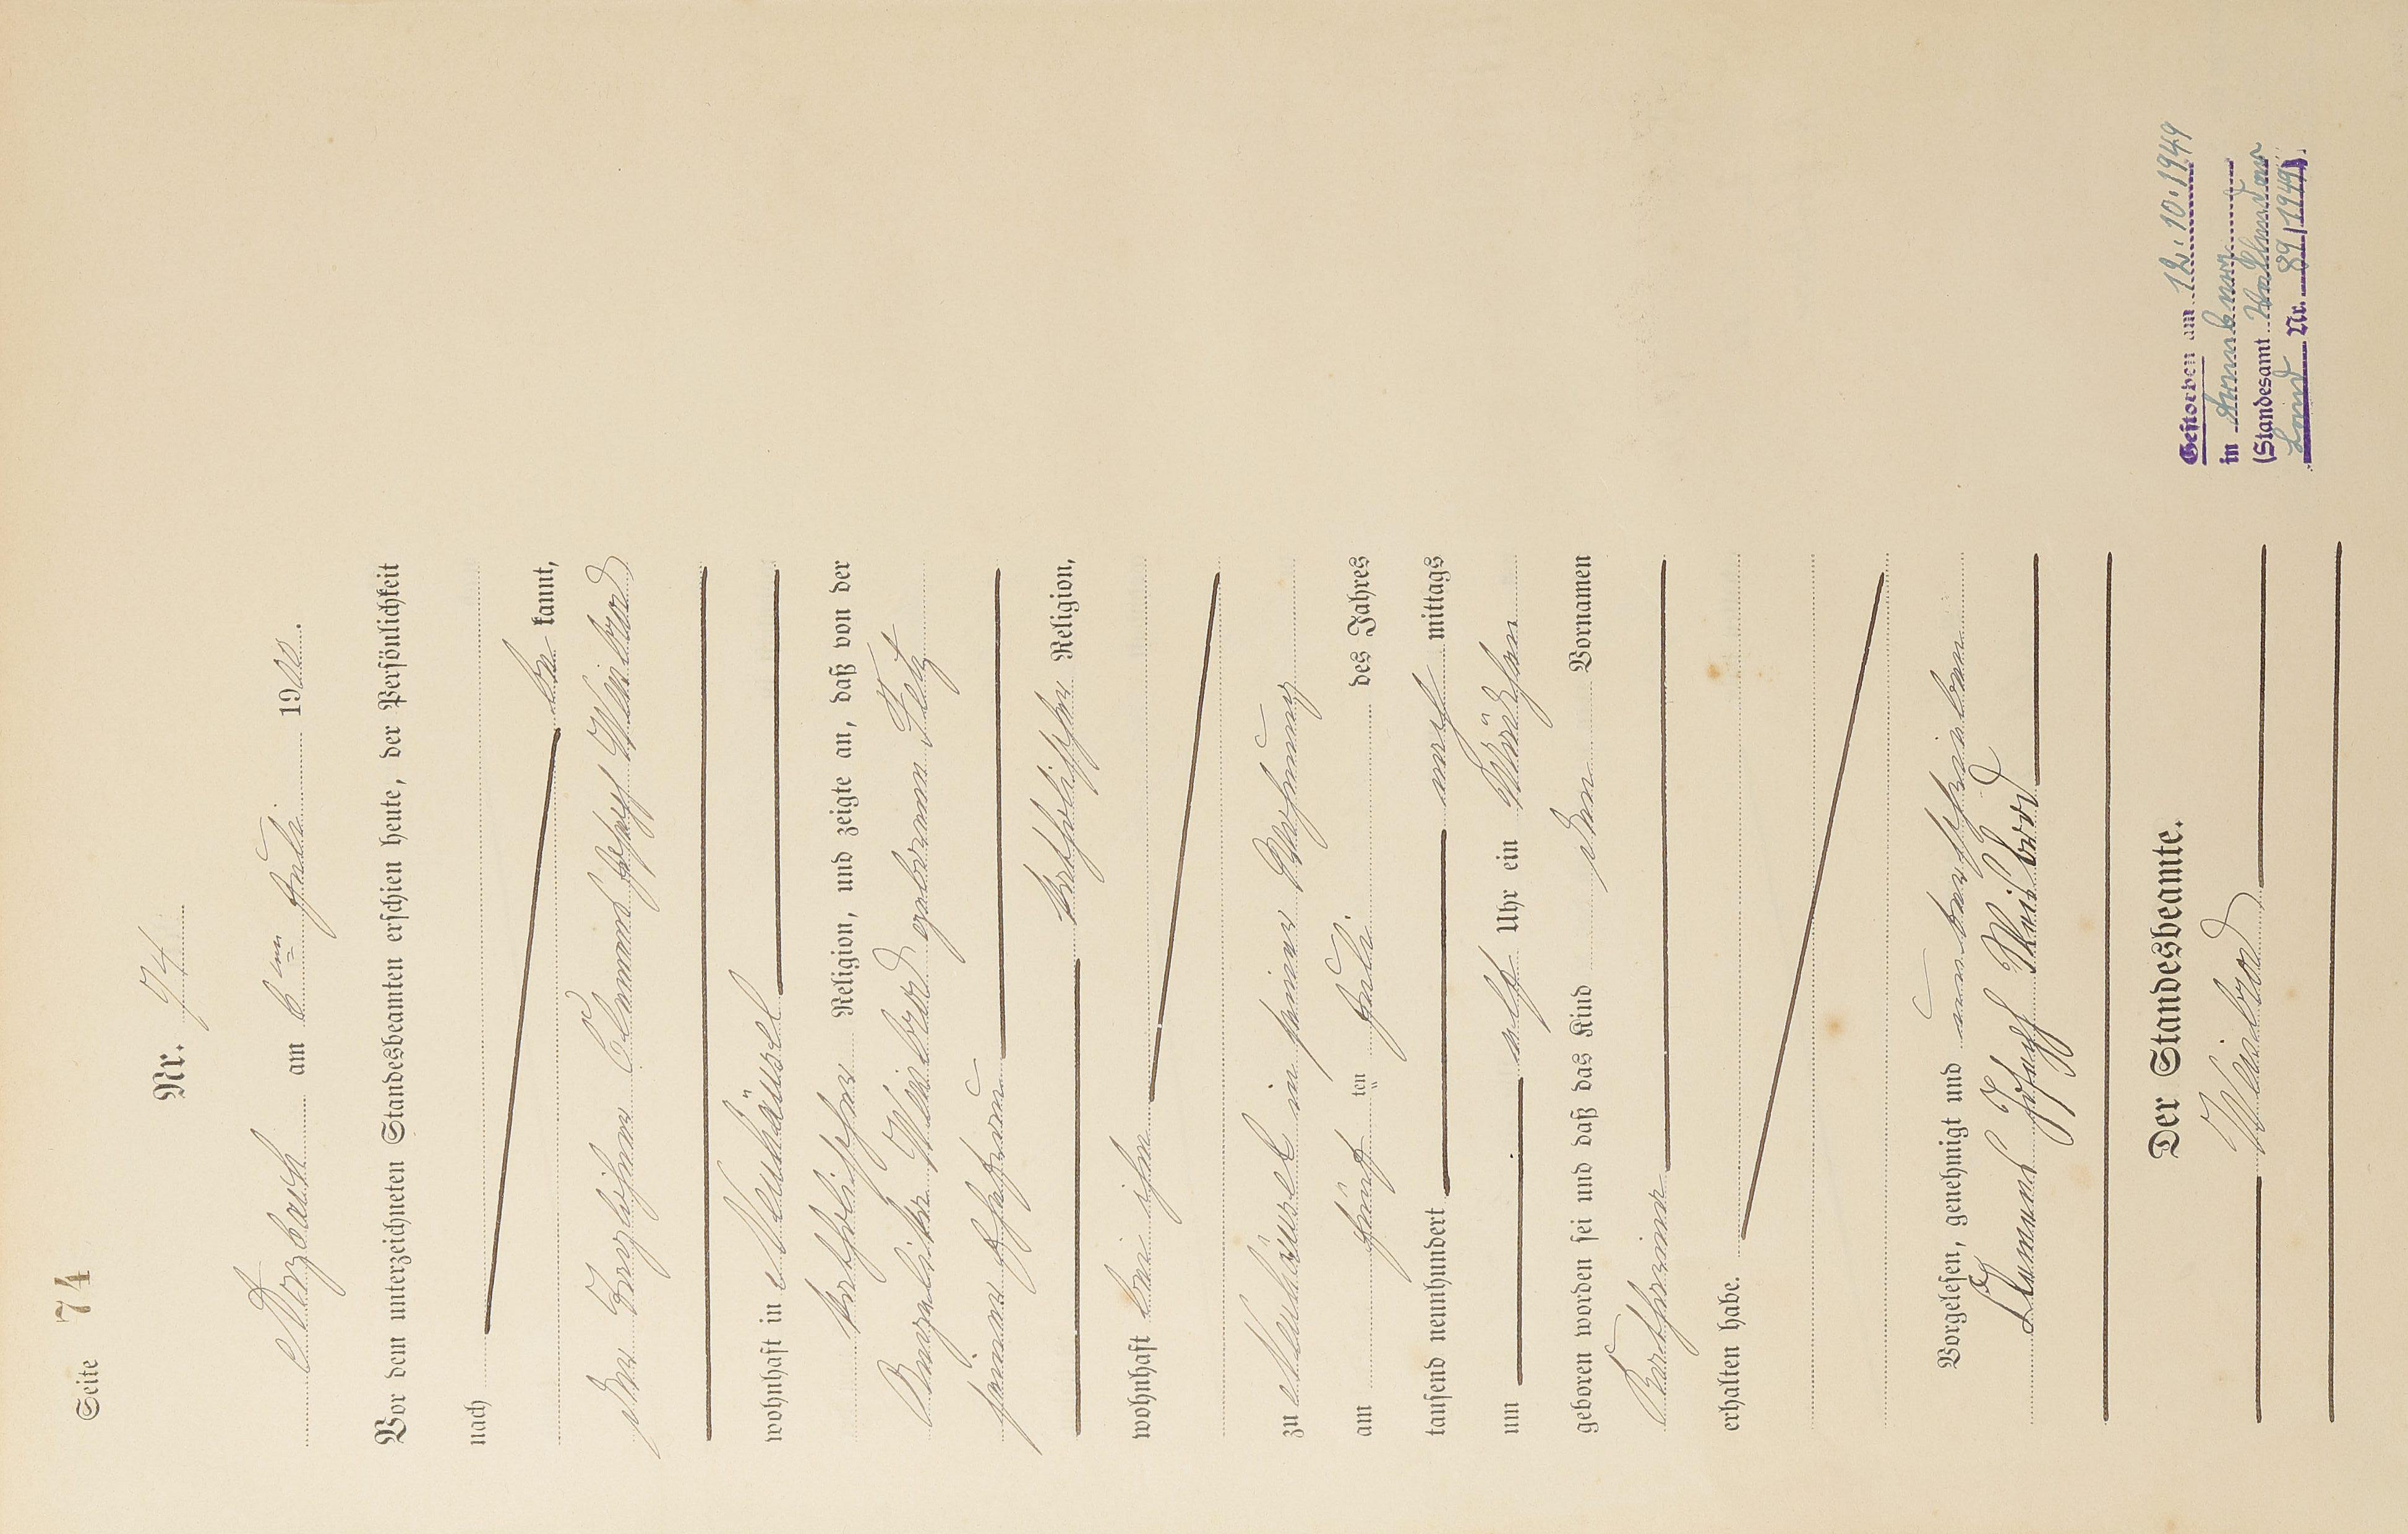 Seite 74
Nr. 74
Morzbach am 6ten Juli 1900.
Vor dem unterzeichneten Standesbeamten erschien heute, der Persönlichkeit
nach
be kannt,
der Taglöhner Clemens Joseph Weinbrod
wohnhaft in Neuhäusel
katholischer Religion, und zeigte an, daß von der
Angelika Weinbrod geborenen
seiner Ehefrau
katholischer Religion,
wohnhaft bei ihm
zu Neuhäusel in seiner Wohnung
am fünf ten Juli des Jahres
tausend neunhundert mittags
um elf Uhr ein Mädchen
geboren worden sei und daß das Kind den Vornamen
Katharina
erhalten habe.
Vorgelesen, genehmigt und unterschrieben
Clemens Joseph Weinbrod
Der Standesbeamte.
Weinbrod
Gestorben am 12.10.1949
in
(Standesamt
Land Nr. 89/1949).